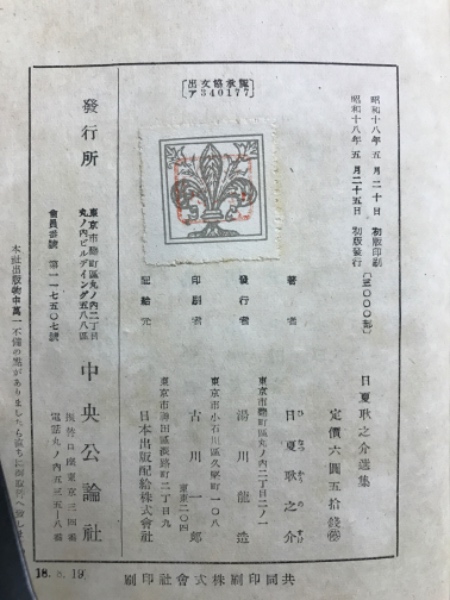 昭和十八年五月二十日 初版印刷
昭和十八年五月二十五日 初版發行
〔三〇〇〇部〕
出文協承認
ア340177
日夏耿之介選集
定價六圓五拾錢
著者
日夏耿之介
東京市麴町區丸ノ内二丁目二ノ一
發行者
湯川龍造
東京市小石川區久堅町一〇八
印刷者
古川一郎
東東二〇四
東京市神田區淡路町二丁目九
配給元
日本出版配給株式會社
發行所
東京市麴町區丸ノ内二丁目
丸ノ内ビルディング五八八區
會員番號 第一一七五〇七號
中央公論社
振替口座東京三四番
電話丸ノ内五三五一八番
共同印刷株式會社印刷